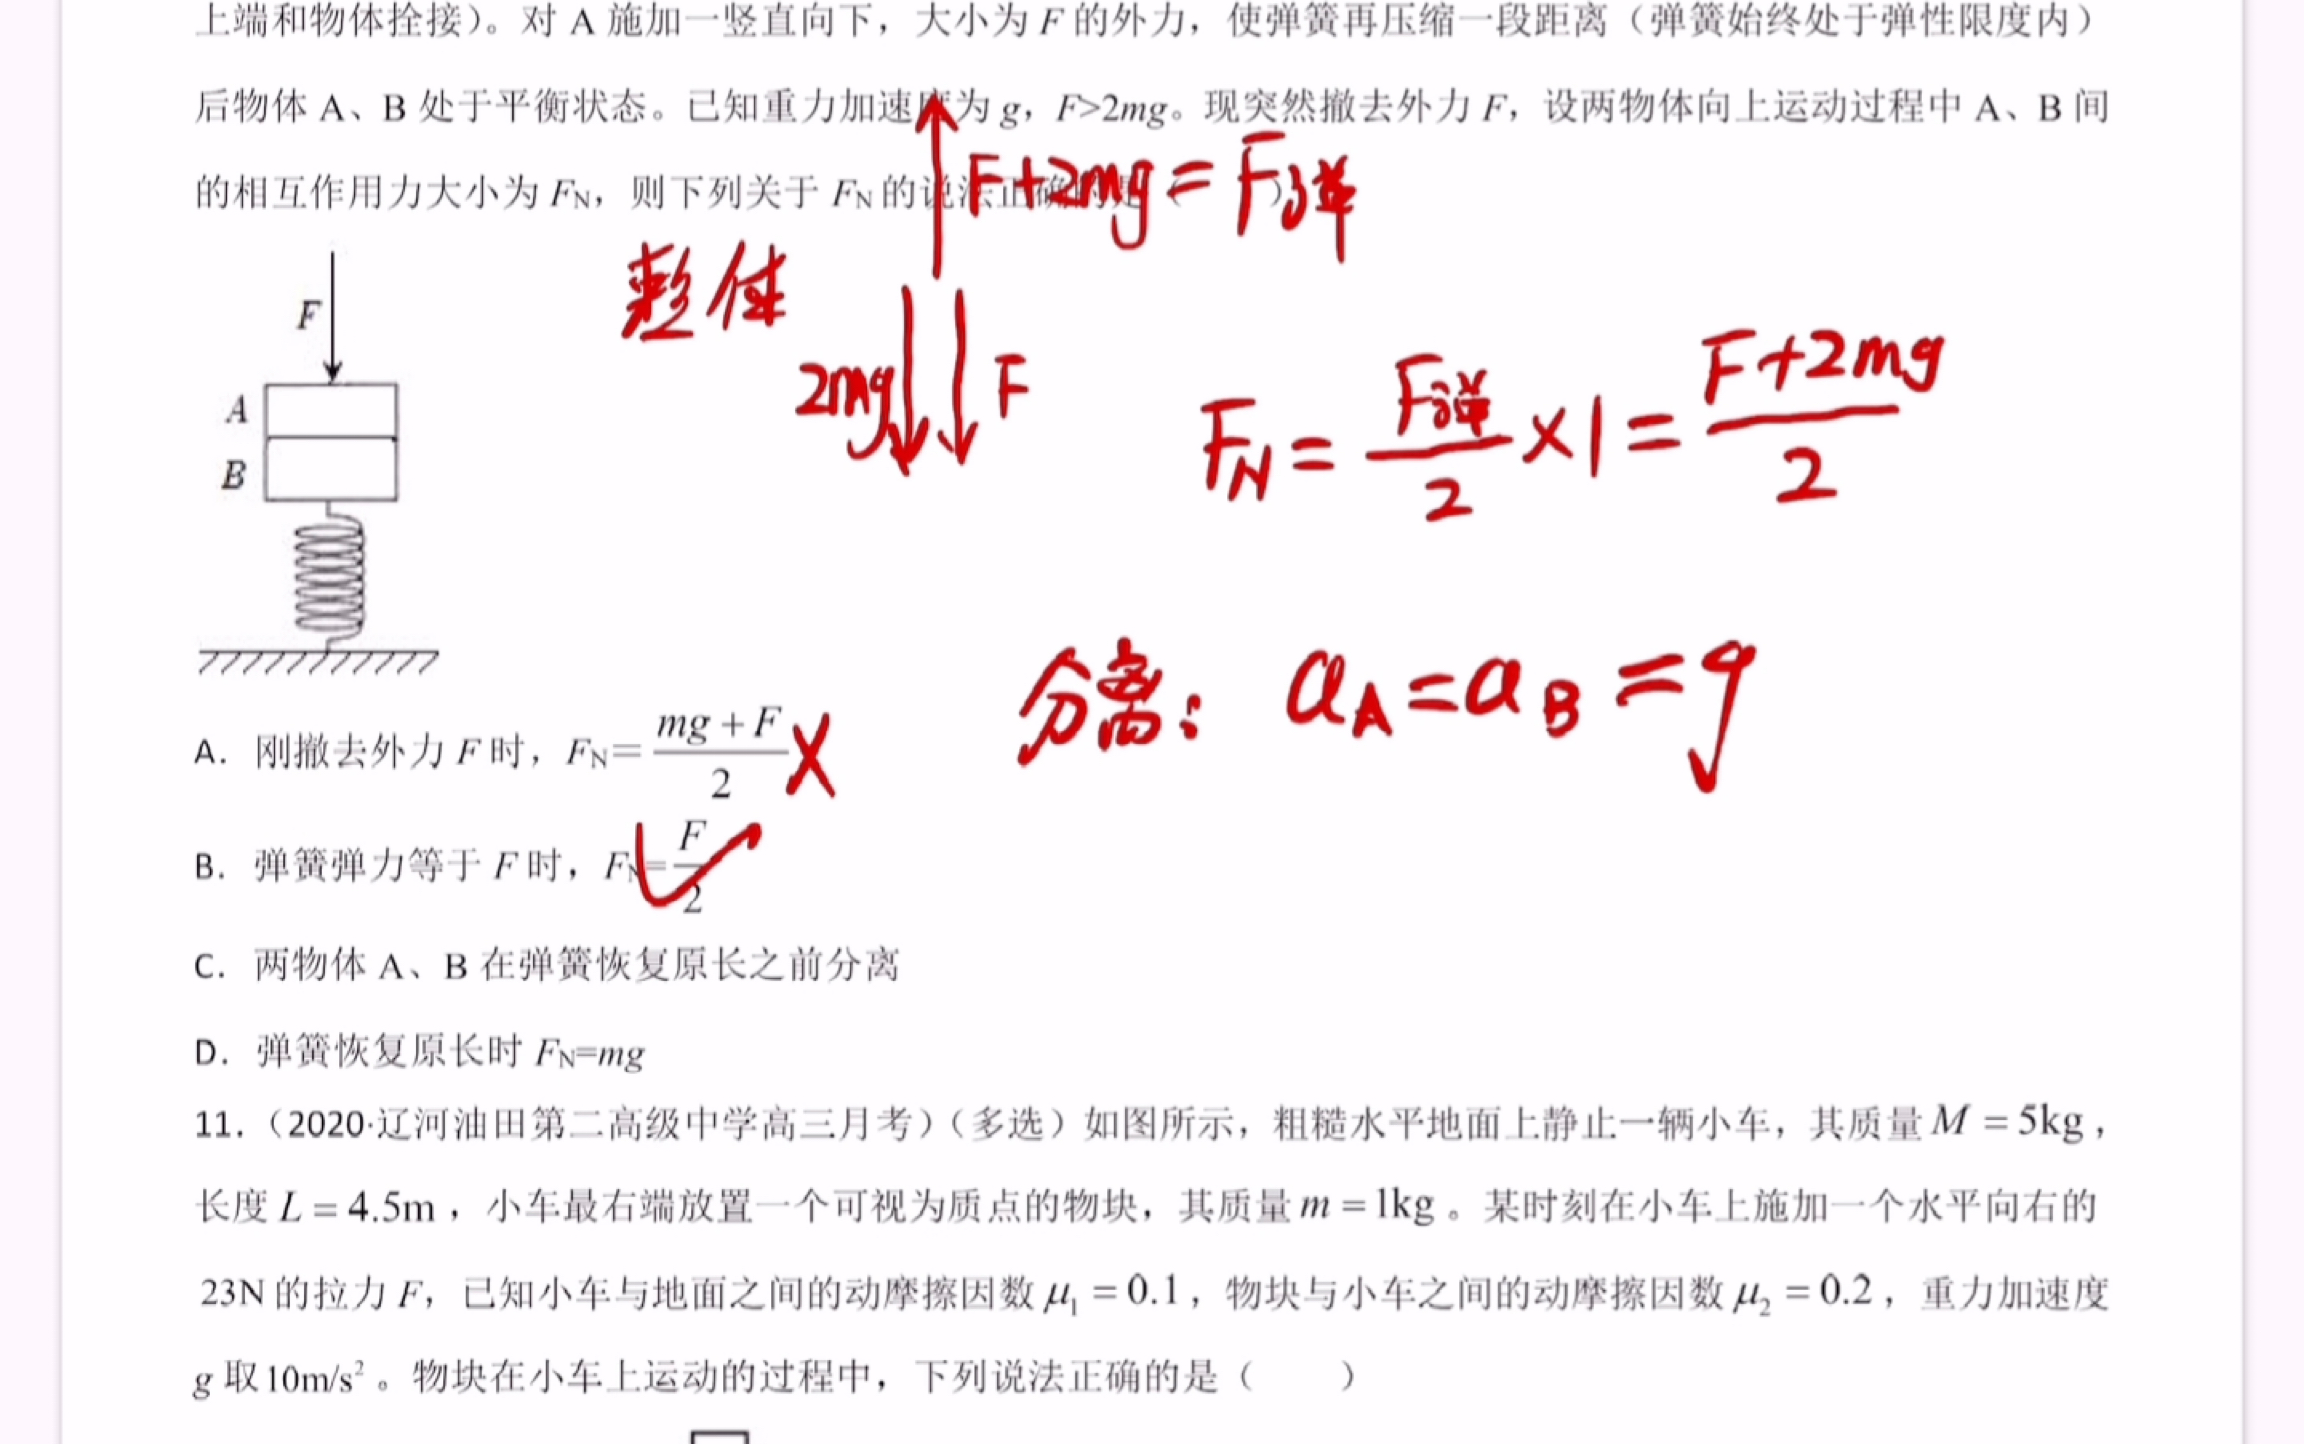 上端和物体拴接）。对 A 施加一竖直向下，大小为 F 的外力，使弹簧再压缩一段距离（弹簧始终处于弹性限度内）
后物体 A、B 处于平衡状态。已知重力加速度为 g，F>2mg。现突然撤去外力 F，设两物体向上运动过程中 A、B 间
的相互作用力大小为 FN，则下列关于 FN 的说法正确的是（ ）
F+2mg=F弹
整体
2mg
F
FN=F弹/2×1=(F+2mg)/2
F
A
B
分离：aA=aB=g
A．刚撤去外力 F 时，FN=(mg+F)/2 X
B．弹簧弹力等于 F 时，FN=F/2
C．两物体 A、B 在弹簧恢复原长之前分离
D．弹簧恢复原长时 FN=mg
11.（2020·辽河油田第二高级中学高三月考）（多选）如图所示，粗糙水平地面上静止一辆小车，其质量 M = 5kg，
长度 L = 4.5m，小车最右端放置一个可视为质点的物块，其质量 m = 1kg。某时刻在小车上施加一个水平向右的
23N 的拉力 F，已知小车与地面之间的动摩擦因数 μ₁ = 0.1，物块与小车之间的动摩擦因数 μ₂ = 0.2，重力加速度
g 取 10m/s²。物块在小车上运动的过程中，下列说法正确的是（ ）